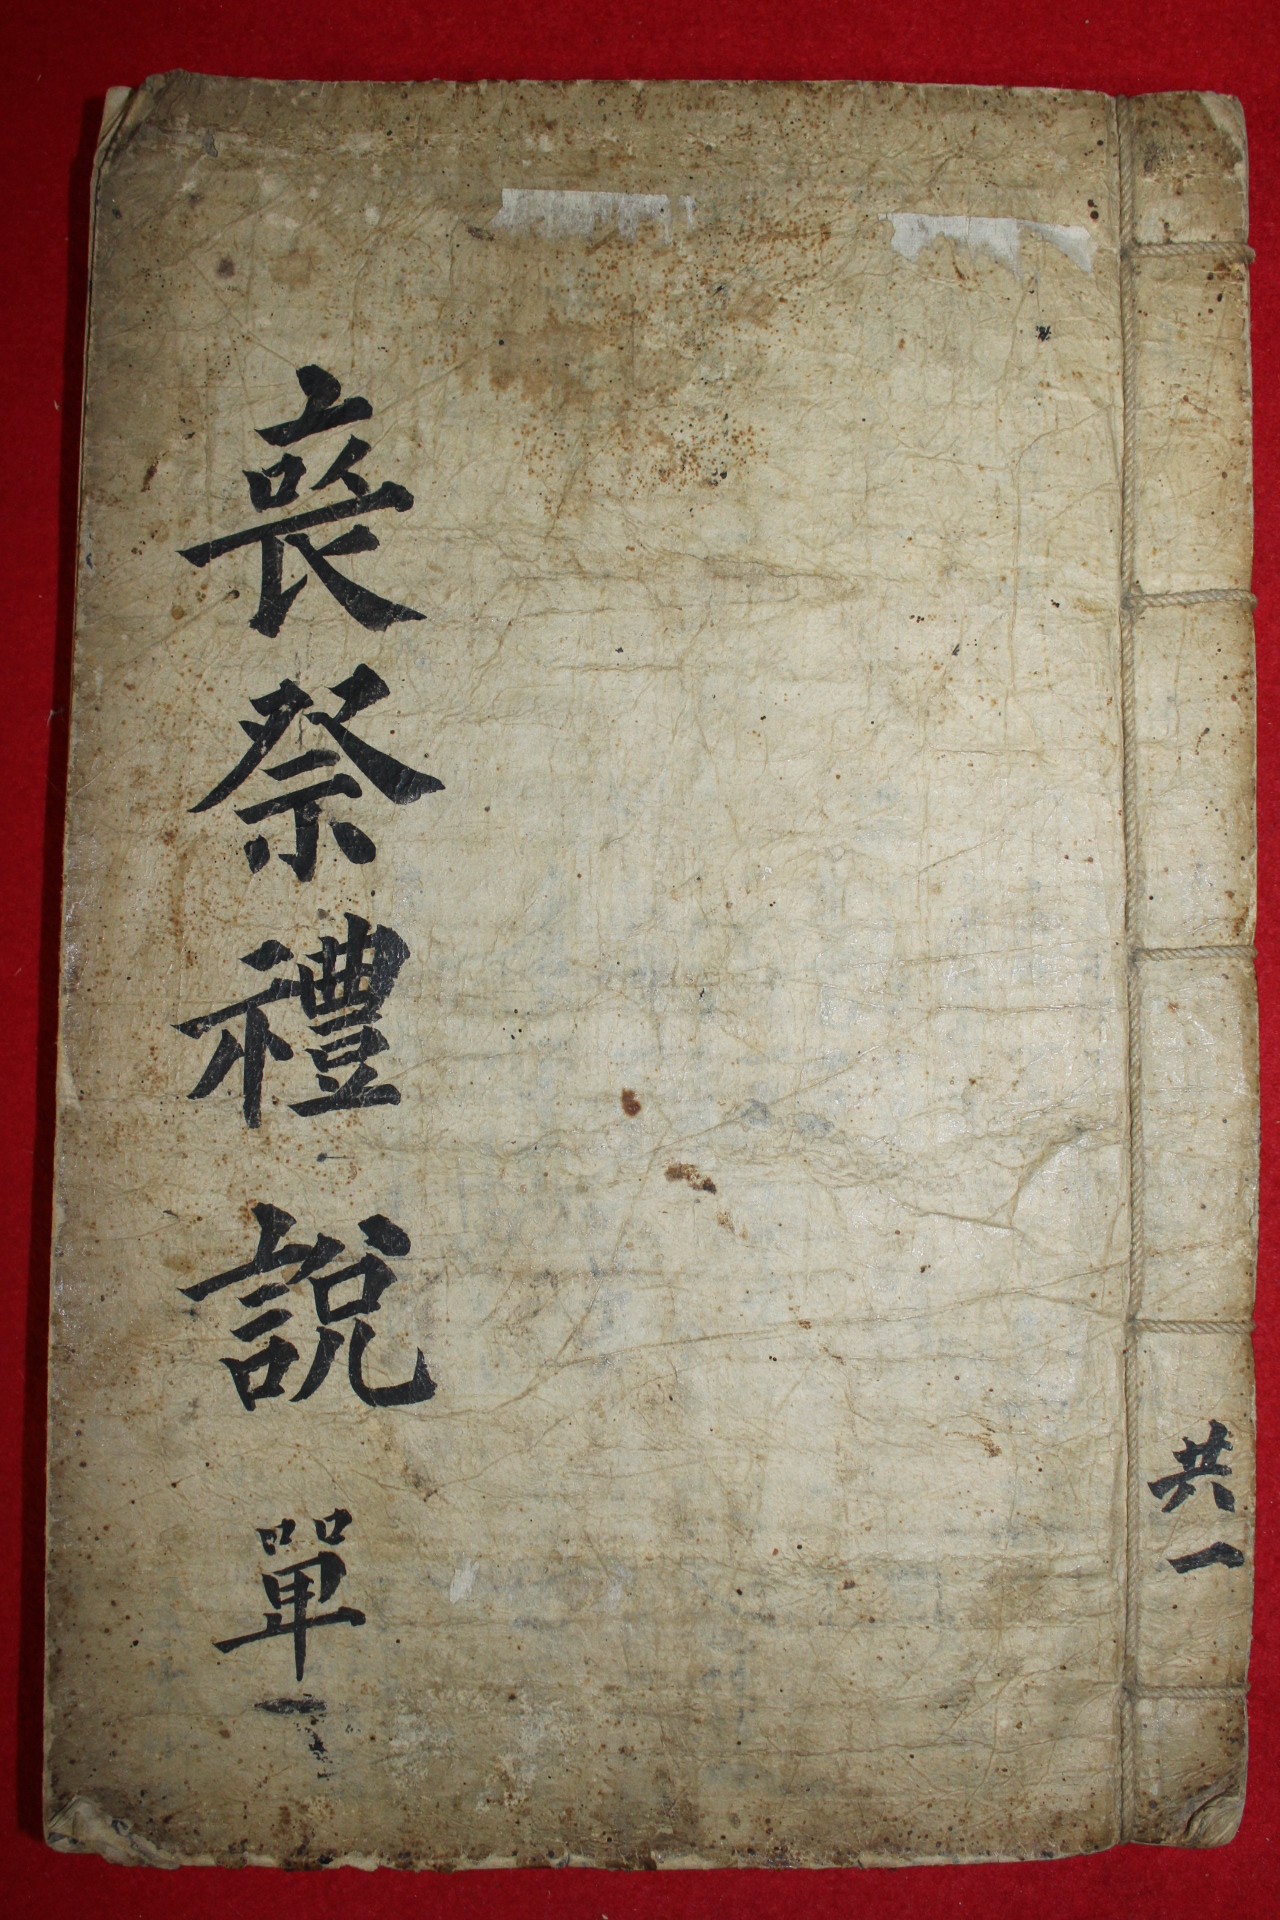 共一
喪祭禮說 單